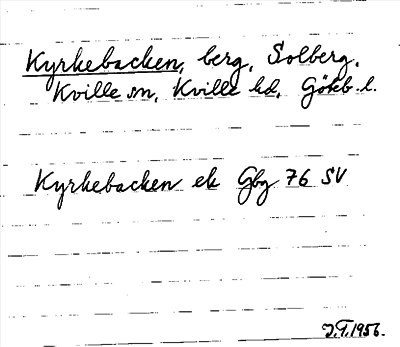 Kyrkebacken, berg, Solberg,
Kville sn, Kville hd, Göteb. l.
Kyrkebacken ek Gbg 76 SV
1956.